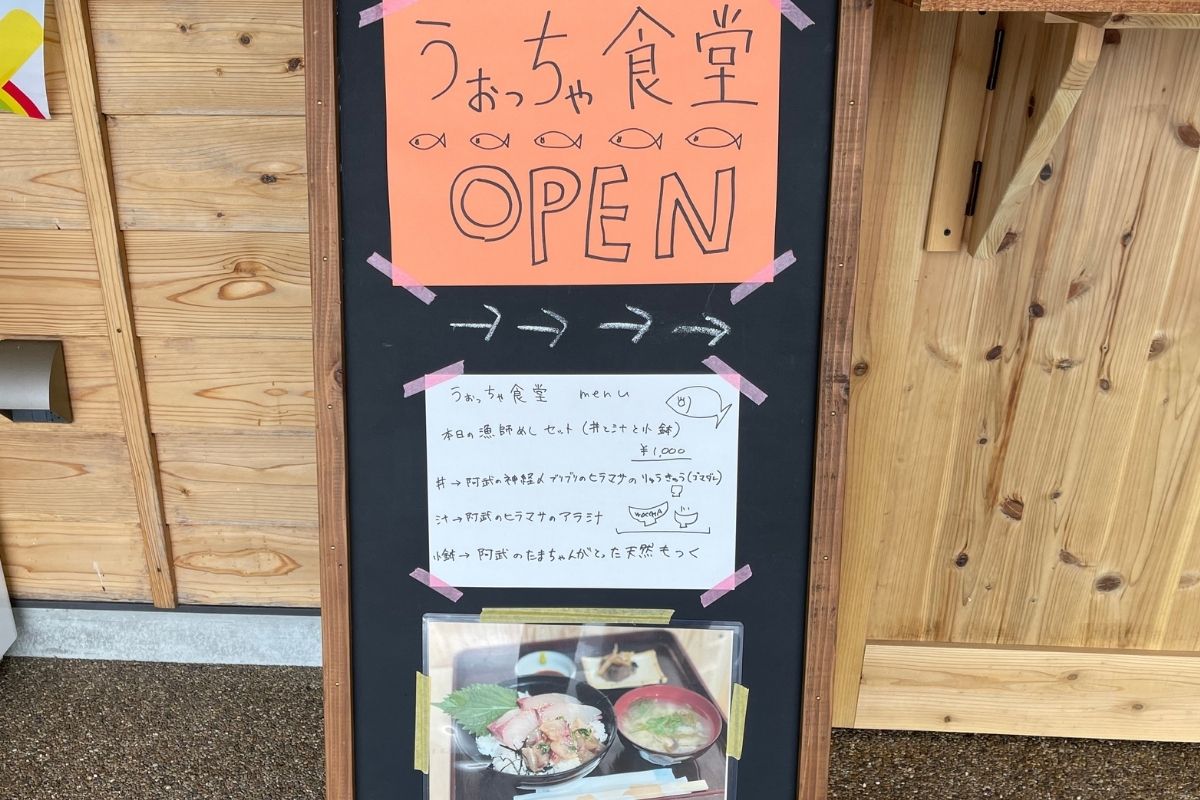 うぉっちゃ食堂
OPEN
→ → → →
うぉっちゃ食堂 menu
本日の漁師めしセット(丼と汁と小鉢)
¥1,000
丼→阿武の神経〆プリプリのヒラマサのりゅうきゅう(ゴマダレ)
汁→阿武のヒラマサのアラ汁
小鉢→阿武のたまちゃんがとった天然もづく